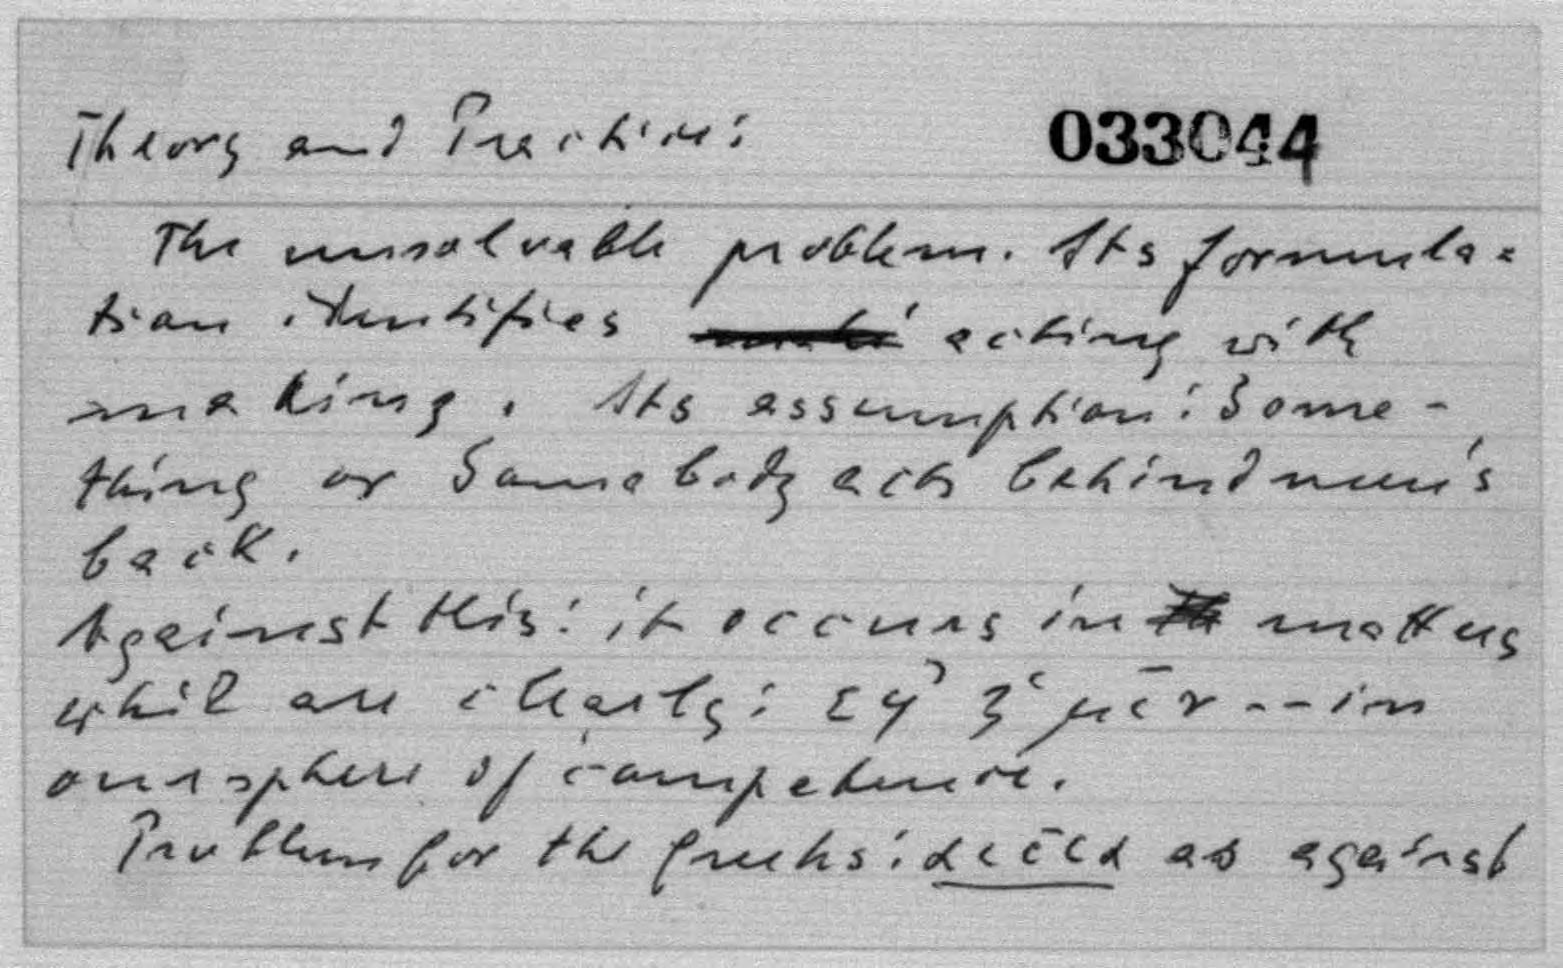 Theory and Practice:
033044
The unsolvable problem. Its formula=
tion identifies acting with
making. Its assumption: Some-
thing or Somebody acts behind men's
back.
Against this: it occurs in matters
which are clearly: ἐφ' ἡμῖν -- in
our sphere of competence.
Problem for the Greeks: as against